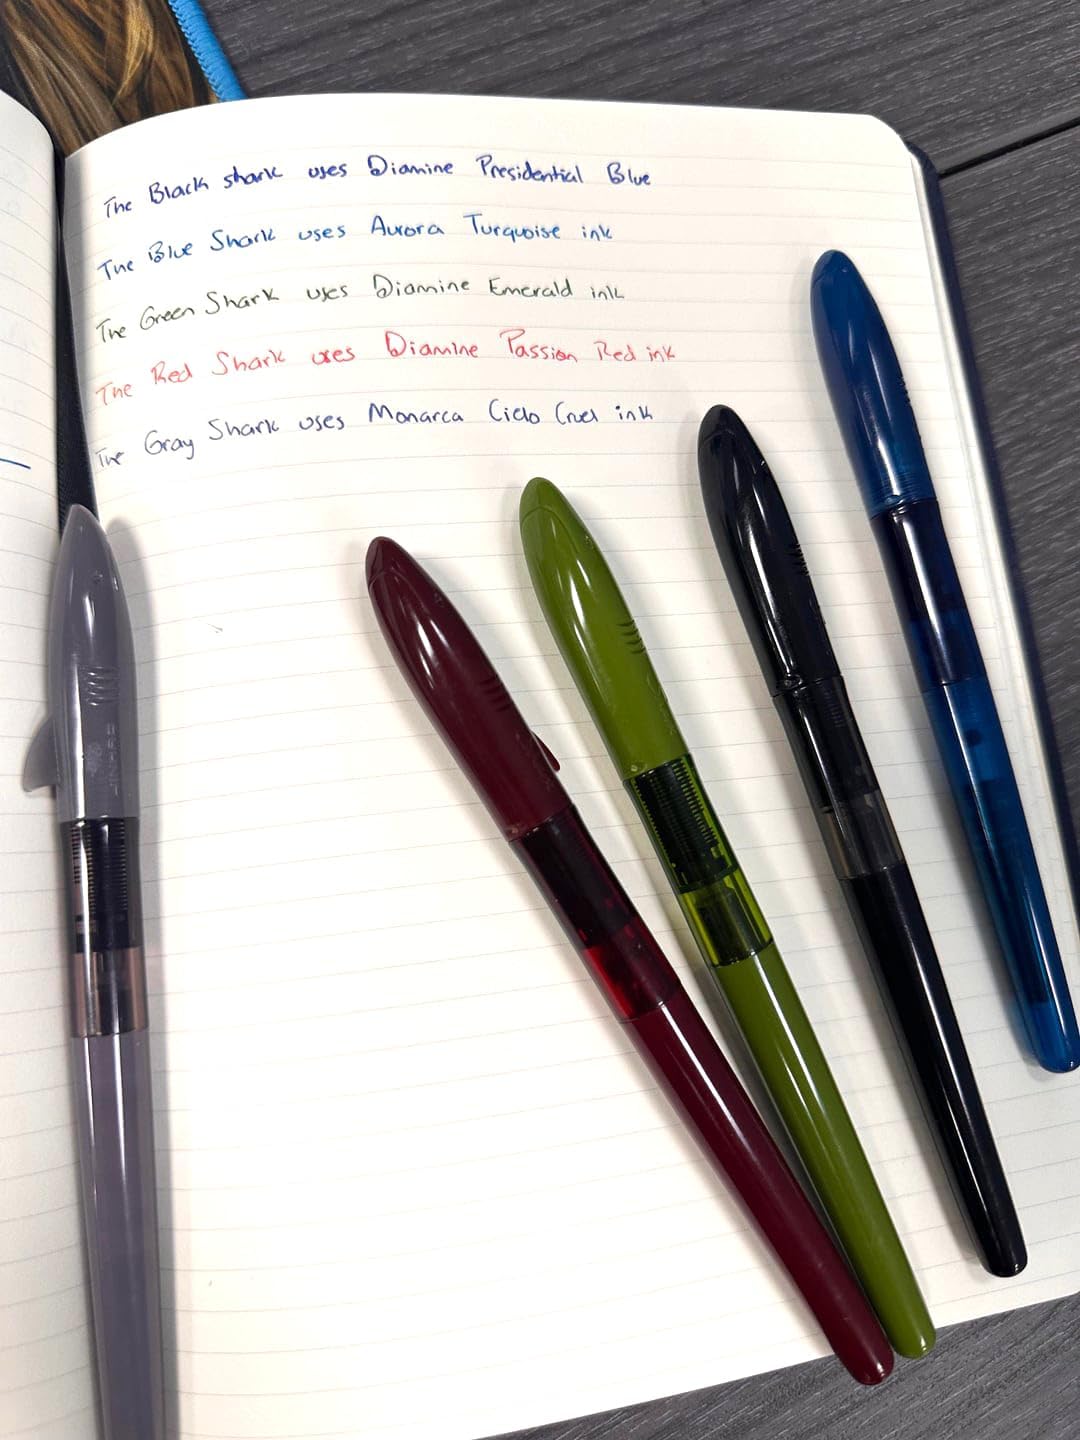 The Black shark uses Diamine Presidential Blue
The Blue Shark uses Aurora Turquoise ink
The Green Shark uses Diamine Emerald ink
The Red Shark uses Diamine Passion Red ink
The Gray Shark uses Monarca Cielo Cruel ink